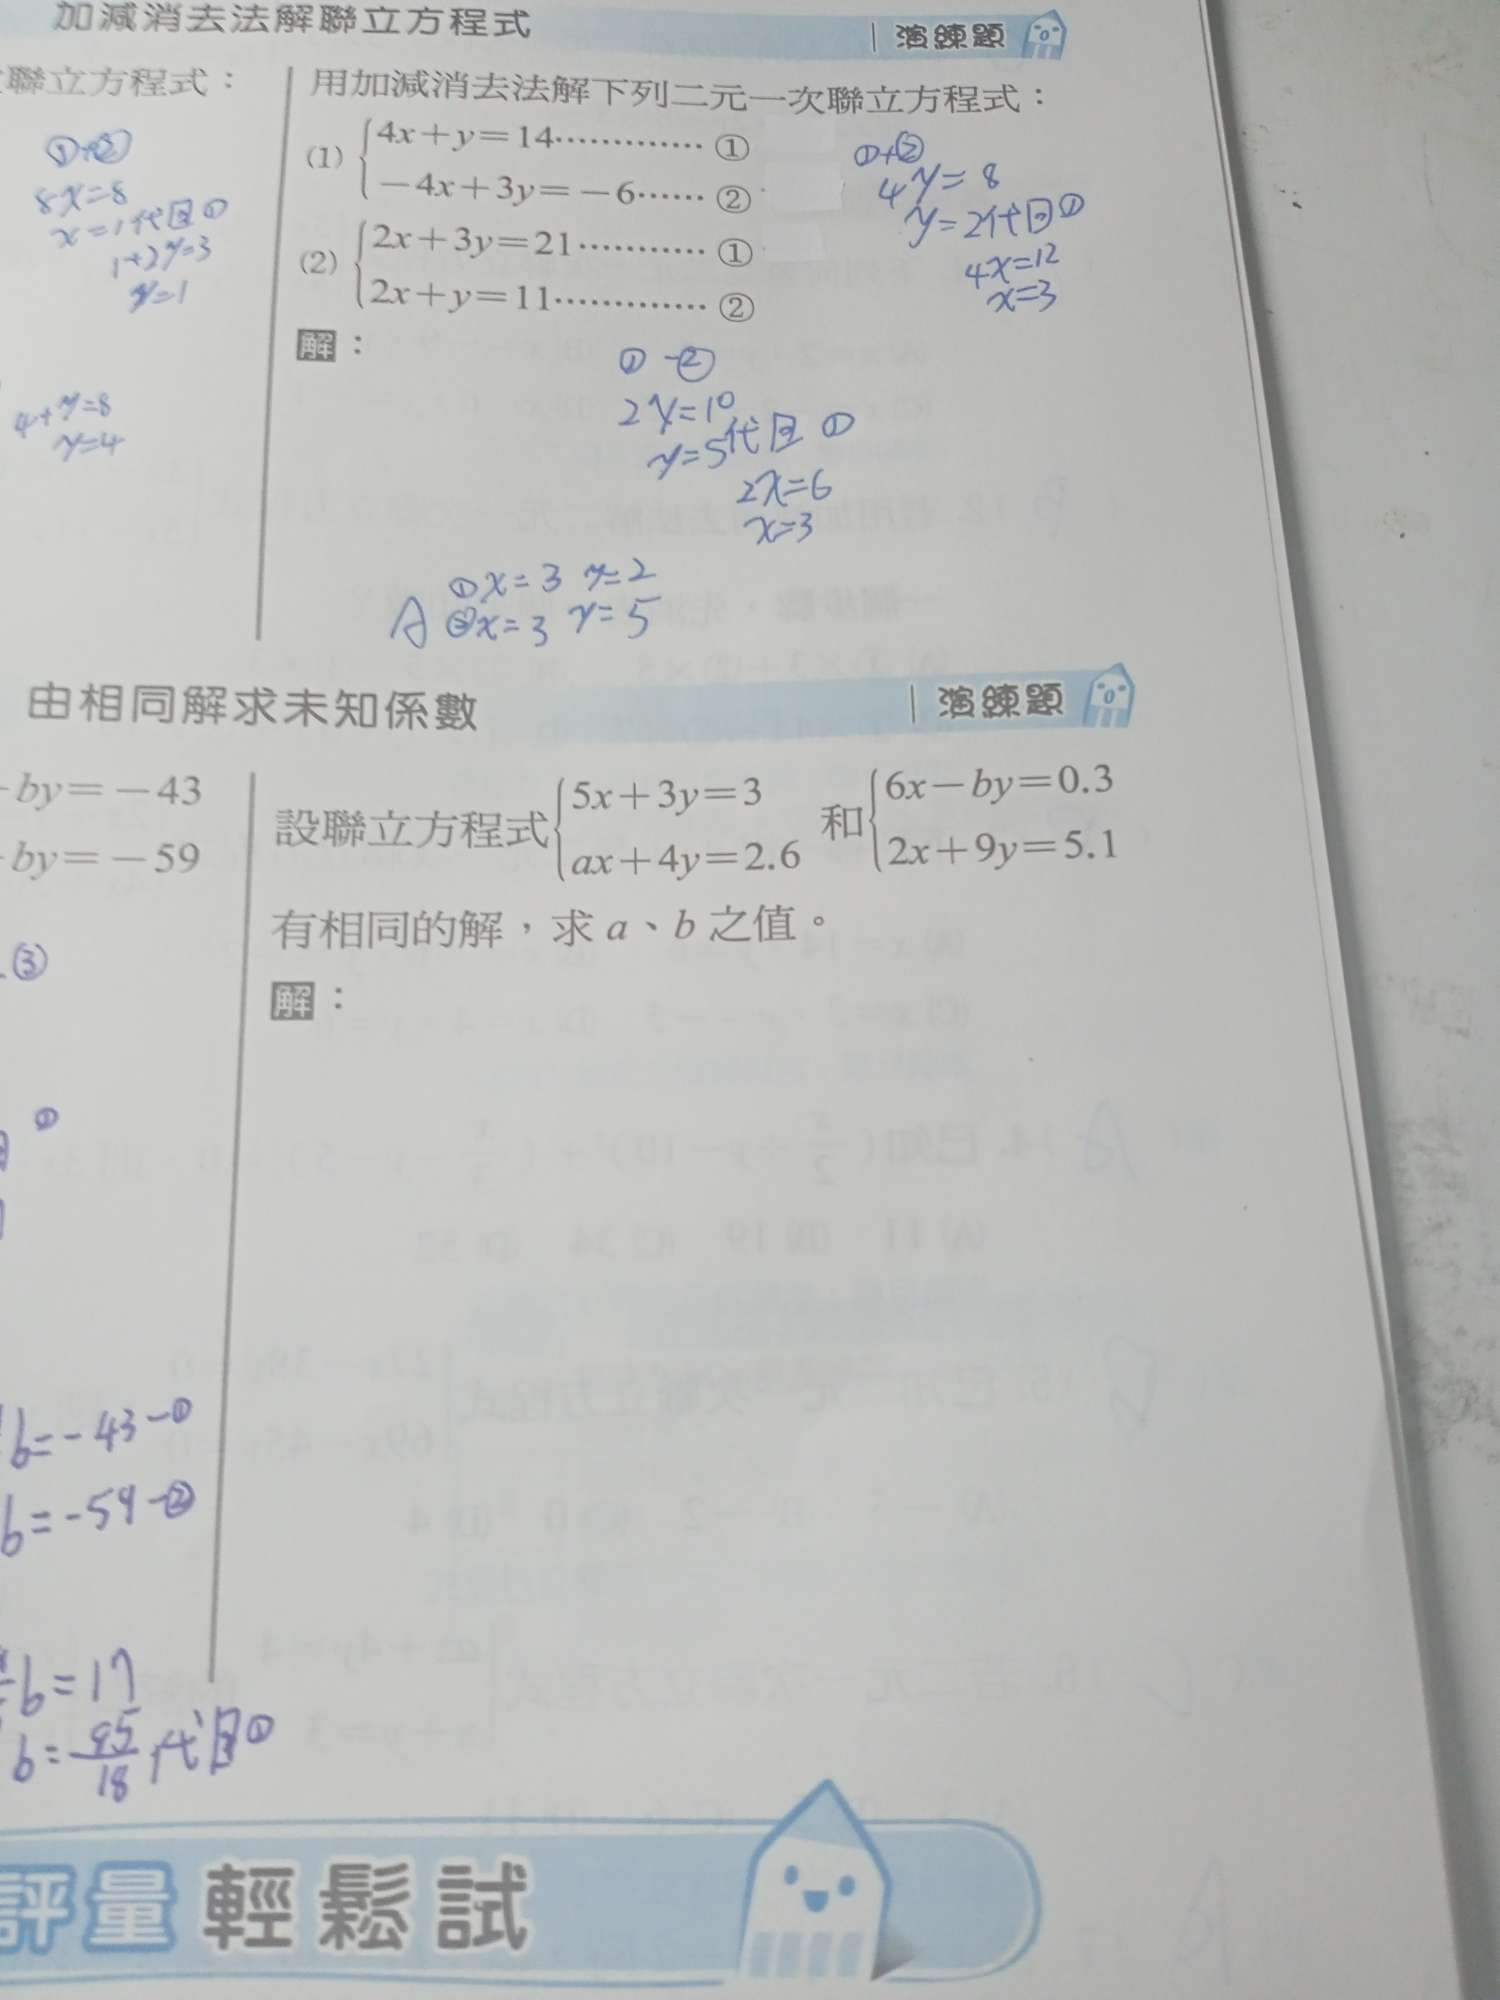 加減消去法解聯立方程式
演練題
聯立方程式：
①+②
8x=8
x=1代回①
1+2y=3
y=1
4+y=8
y=4
用加減消去法解下列二元一次聯立方程式：
(1) 4x+y=14············· ①
-4x+3y=-6······ ②
(2) 2x+3y=21··········· ①
2x+y=11············· ②
①+②
4y=8
y=2代回①
4x=12
x=3
解：
①-②
2y=10
y=5代回①
2x=6
x=3
A ①x=3 y=2
②x=3 y=5
由相同解求未知係數
演練題
by=-43
by=-59
③
①
b=-43-①
b=-59-②
b=17
b=95/18代回①
設聯立方程式 5x+3y=3 和 6x-by=0.3
ax+4y=2.6 2x+9y=5.1
有相同的解，求 a、b 之值。
解：
評量輕鬆試